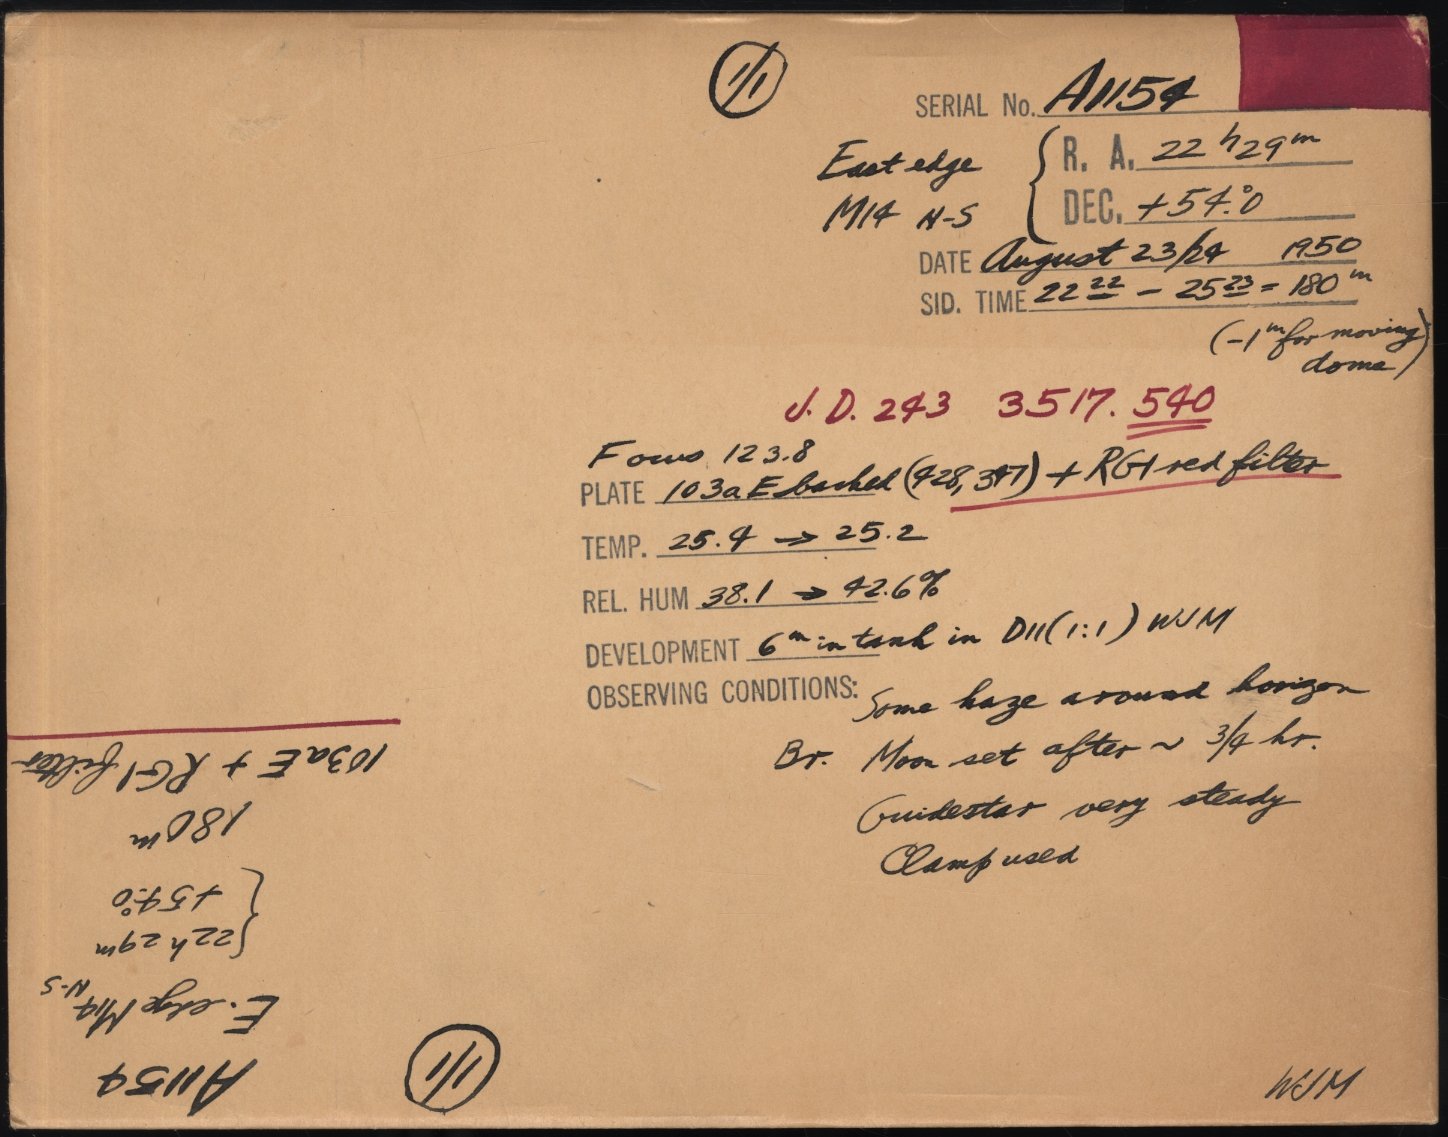 11/1
SERIAL No. A1154
East edge
M14 N-S
R. A. 22h29m
DEC. +54.°0
DATE August 23/24 1950
SID. TIME 22 22 - 25 23 = 180m
(-1m for moving
dome)
J.D. 243 3517.540
Focus 123.8
PLATE 103aE backed (428,347) + RG1 red filter
TEMP. 25.4 → 25.2
REL. HUM 38.1 → 42.6%
DEVELOPMENT 6m in tank in D11(1:1) WJM
OBSERVING CONDITIONS: Some haze around horizon
Br. Moon set after ~ 3/4 hr.
Guidestar very steady
Clamp used
WJM
11/1
A1154
E. edge M14 N-S
22h 29m
+54.°0
180m
103aE + RG1 filter